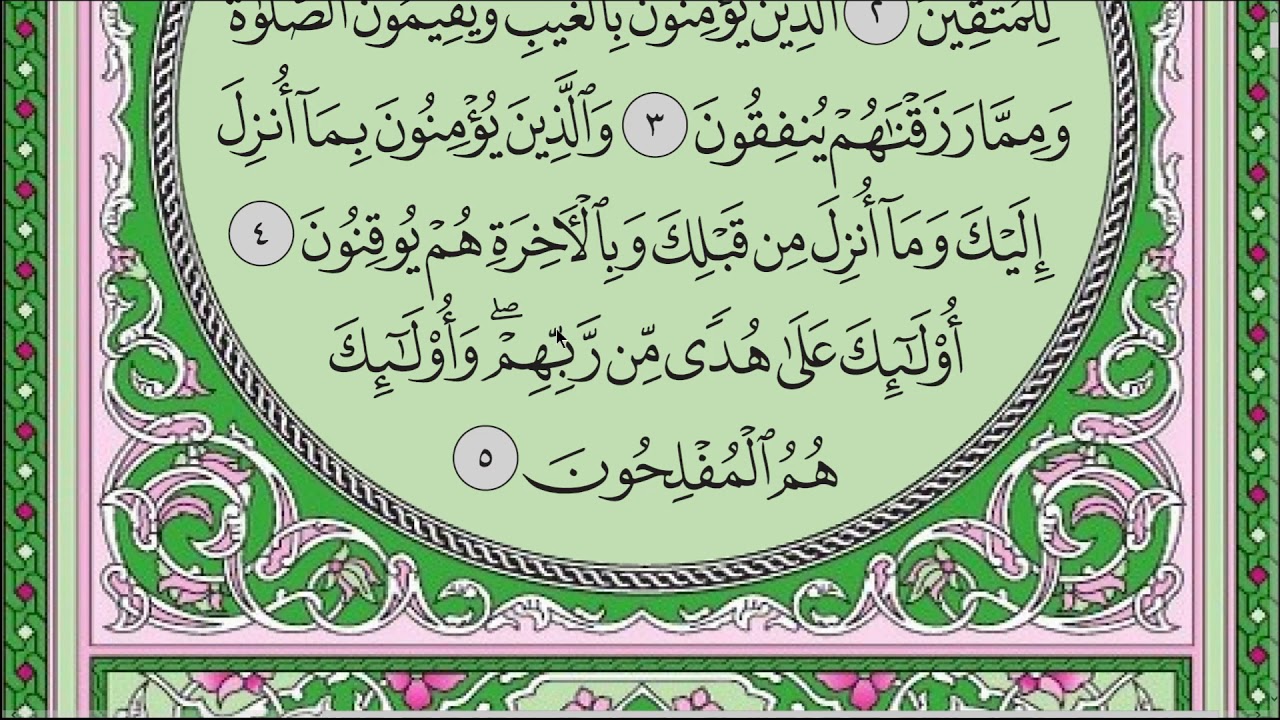 لِلْمُتَّقِينَ ٢ ٱلَّذِينَ يُؤْمِنُونَ بِٱلْغَيْبِ وَيُقِيمُونَ ٱلصَّلَوٰةَ
وَمِمَّا رَزَقْنَٰهُمْ يُنفِقُونَ ٣ وَٱلَّذِينَ يُؤْمِنُونَ بِمَآ أُنزِلَ
إِلَيْكَ وَمَآ أُنزِلَ مِن قَبْلِكَ وَبِٱلْأَخِرَةِ هُمْ يُوقِنُونَ ٤
أُوْلَٰٓئِكَ عَلَىٰ هُدًى مِّن رَّبِّهِمْ ۖ وَأُوْلَٰٓئِكَ
هُمُ ٱلْمُفْلِحُونَ ٥